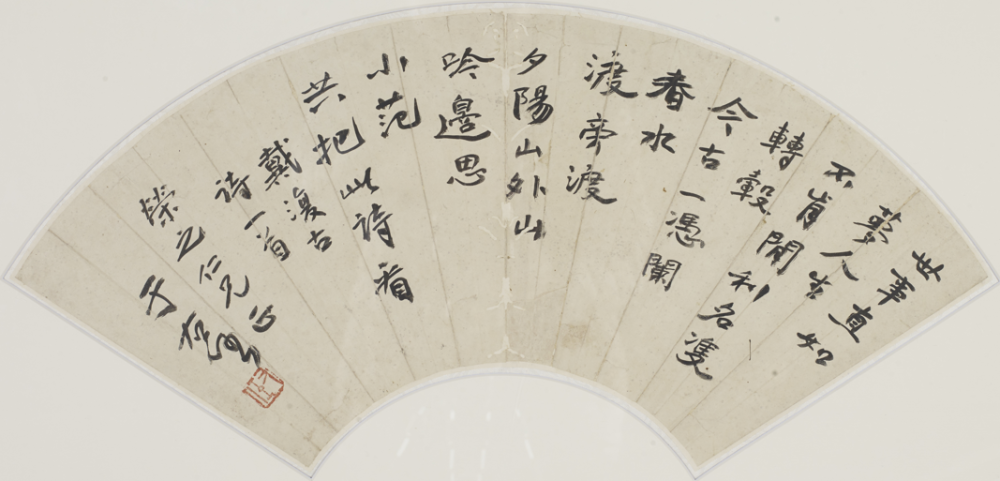 世事直如
夢人生
不肯閒利名雙
轉轂
今古一憑闌
春水
渡旁渡
夕陽山外山
吟邊思
小范
共把此詩看
戴復古
詩一首
榮之仁兄正